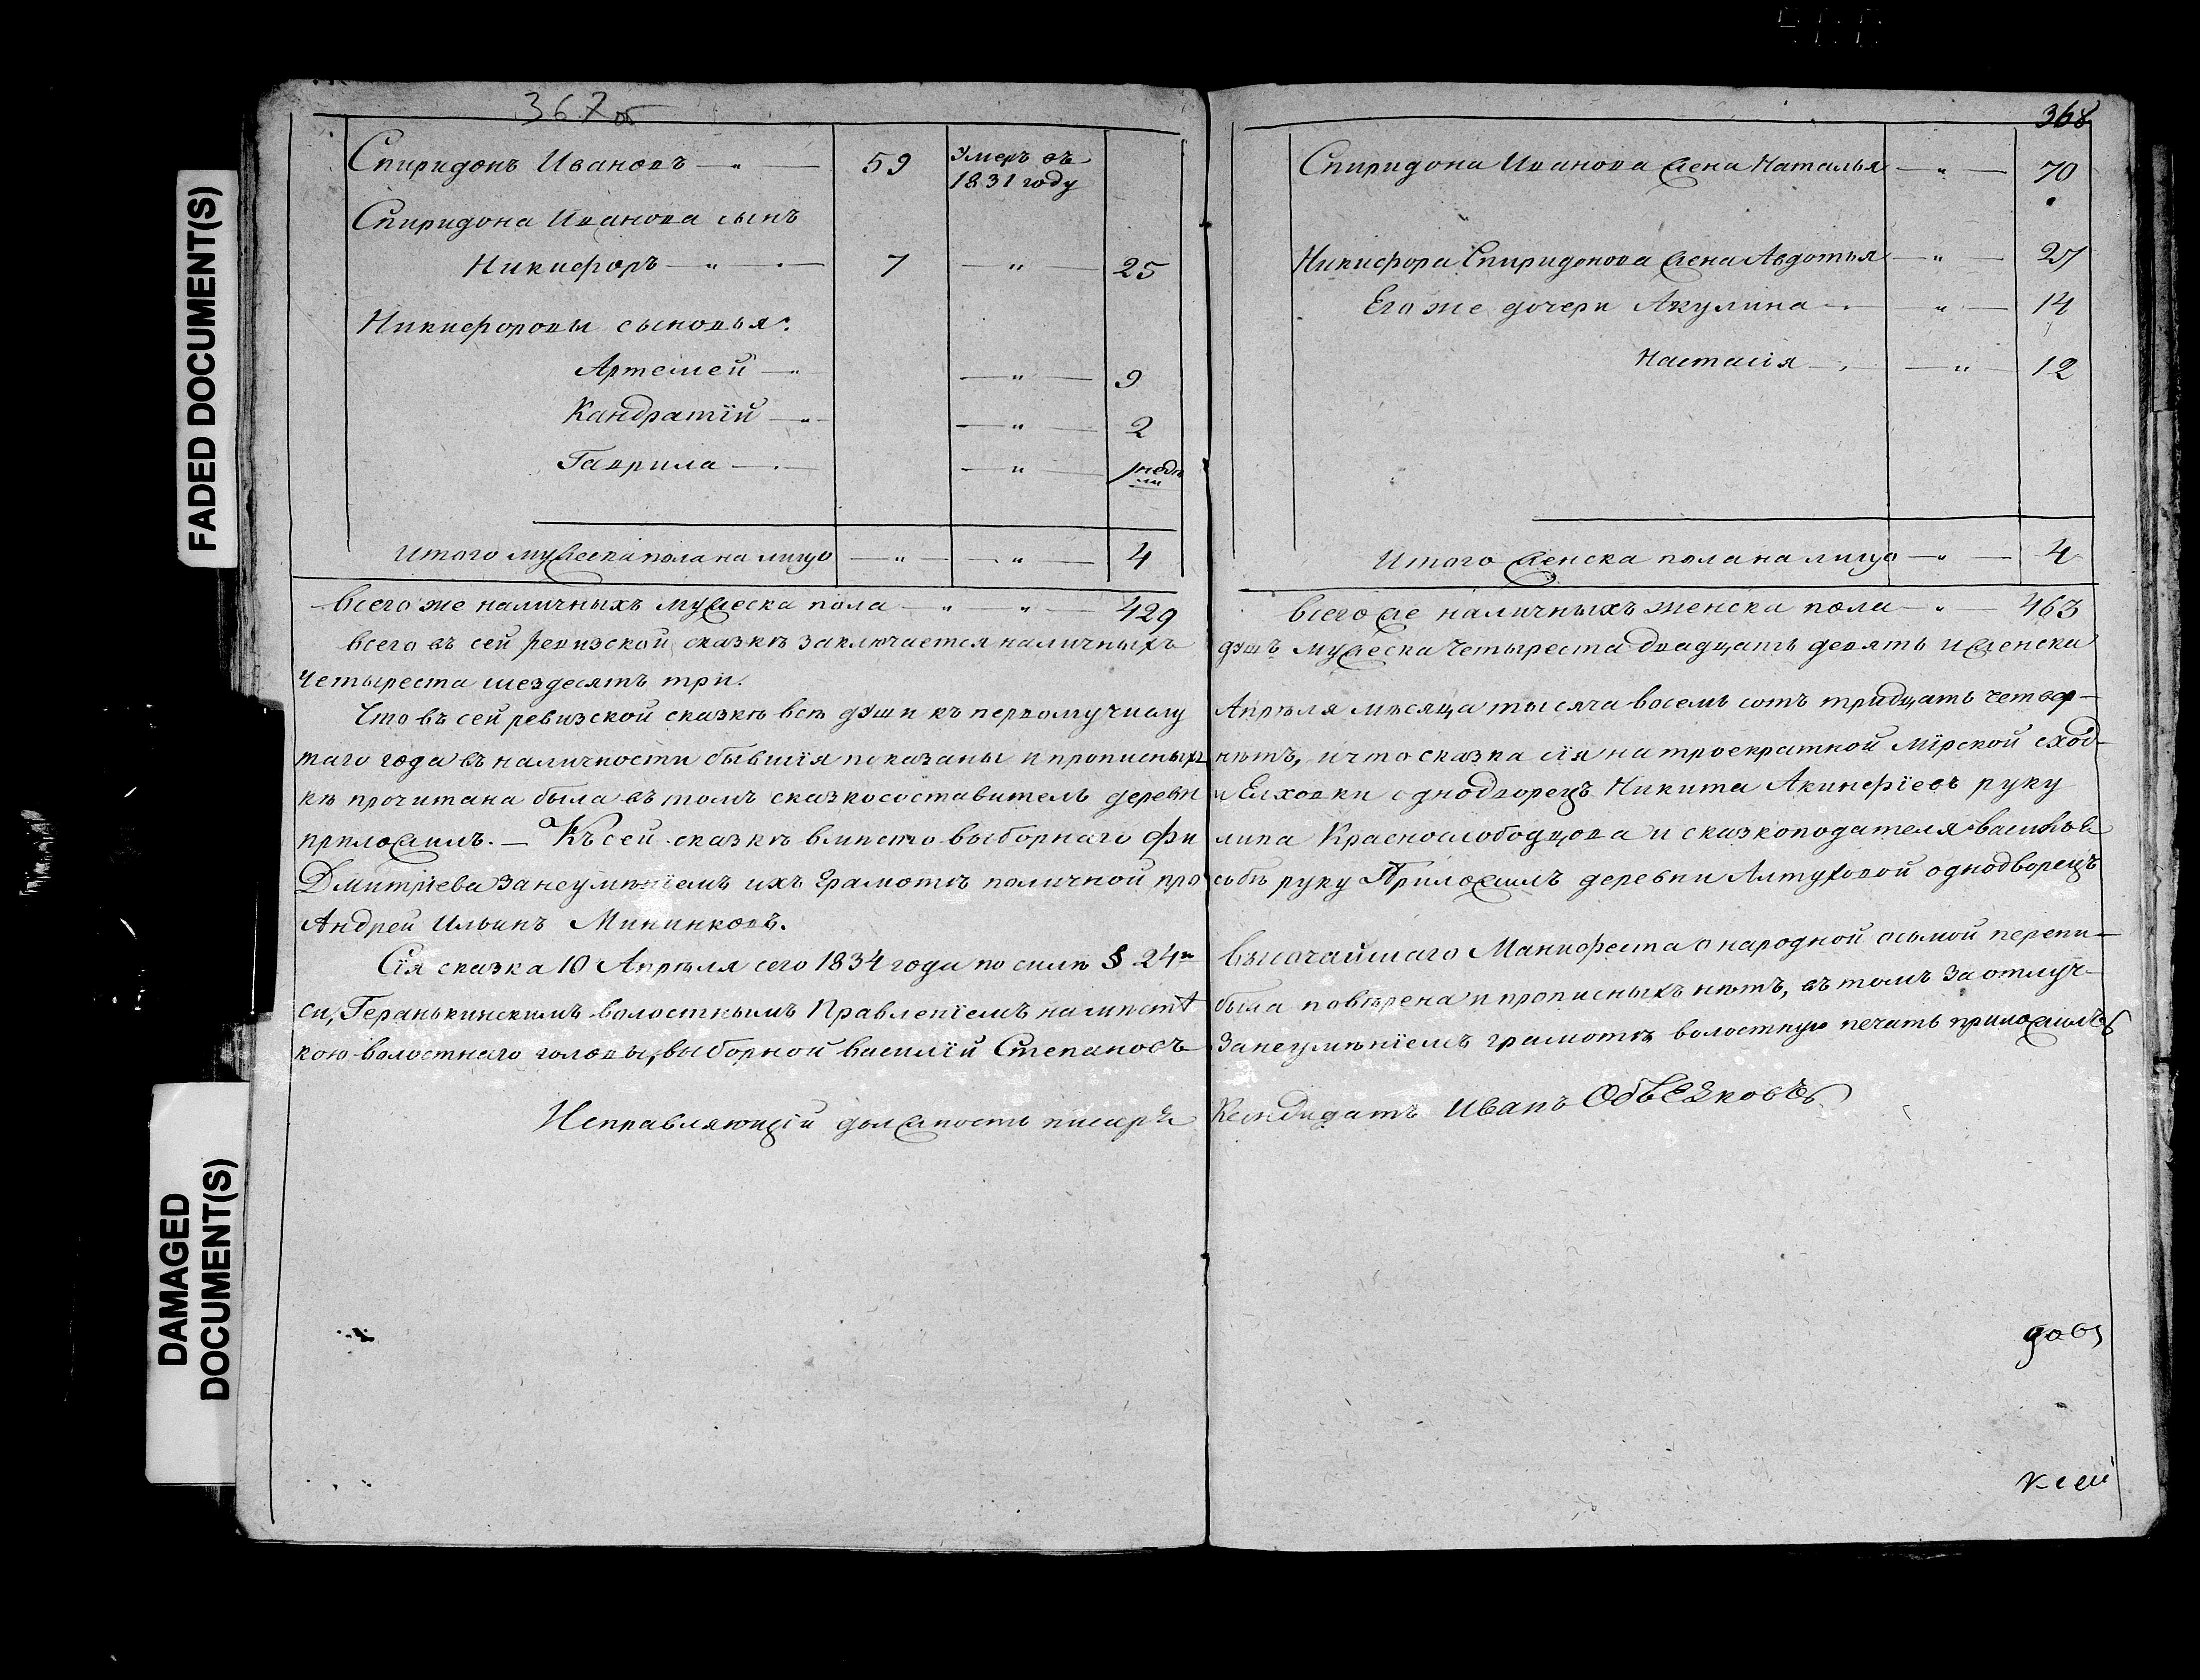 FADED DOCUMENT(S)
DAMAGED
DOCUMENT(S)
367 об
Спиридонъ Ивановъ — " — 59 Умеръ въ
1831 году
Спиридона Иванова сынъ
Никифоръ — " — 7 — " — 25
Никифоровы сыновья:
Артемей — " — " — 9
Кандратїй — " — " — 2
Гаврила — " — " —
Итого мужеска пола на лицо — " — — " — 4
Всего же наличныхъ мужеска пола — " — " — 429
Всего въ сей ревизской сказкѣ заключается наличныхъ
четыреста шездесятъ три.
Что въ сей ревизской сказкѣ всѣ души къ первому числу
таго года въ наличности бывшїя показаны и прописныхъ
кѣ прочитана была въ томъ сказкосоставитель деревн
приложилъ. — Къ сей сказкѣ вмѣсто выборнаго Фи
Дмитрїева занеумѣнїемъ ихъ грамотѣ поличной про
Андрей Ильинъ Мининковъ.
Сїя сказка 10 Апрѣля сего 1834 года по силѣ § 24го
си, Геранькинскимъ волостнымъ Правленїемъ на мѣстѣ
кою волостнаго головы, выборной Василїй Степановъ
Исправляющїй должность писаря
368
Спиридона Иванова жена Наталья — " — 70
Никифора Спиридонова жена Авдотья — " — 27
Его же дочери Акулина — " — 14
Настасїя — " — 12
Итого женска пола на лицо — " — 4
Всего же наличныхъ женска пола — " — 463
душъ мужеска четыреста двадцать девять и женска
Апрѣля мѣсяца тысяча восемь сотъ тридцать четвер-
нѣтъ, и что сказка сїя на троекратной мїрской сход-
и Елховки однодворецъ Никита Акинфїевъ руку
липа Краснослободцова и сказкоподателя Василья
сьбѣ руку приложилъ деревни Алтуховой однодворецъ
Высочайшаго Манифеста о народной осьмой перепи-
была повѣрена и прописныхъ нѣтъ, въ томъ за отлуч-
занеумѣнїемъ грамотѣ волостную печать приложилъ
Кандидатъ Иванъ Объедковъ
довъ
к сей